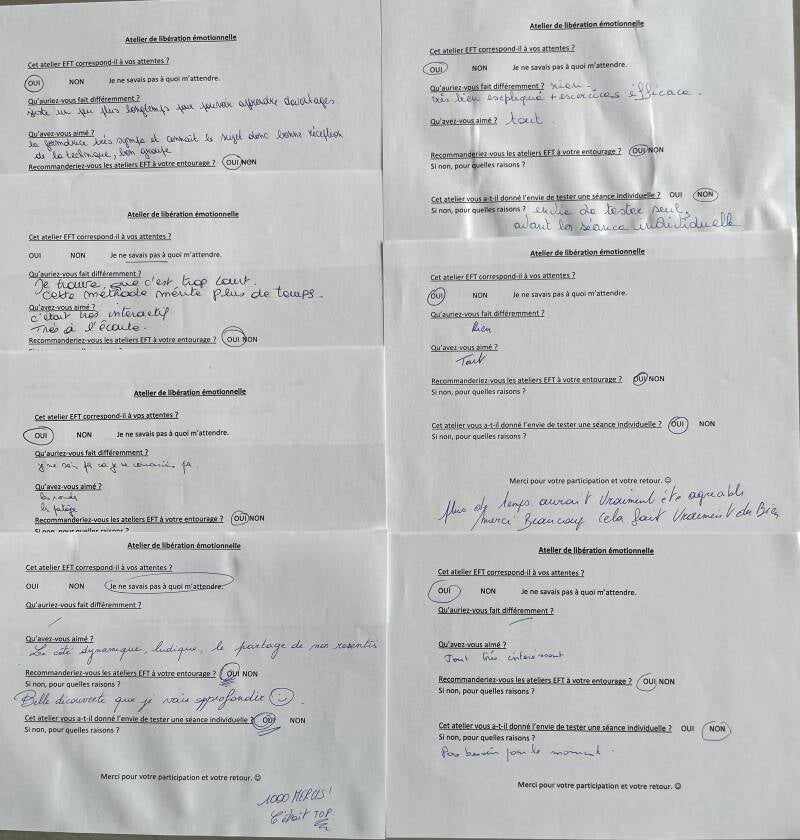 Atelier de libération émotionnelle
Cet atelier EFT correspond-il à vos attentes ?
OUI NON Je ne savais pas à quoi m'attendre.
Qu'auriez-vous fait différemment ?
juste un peu plus longtemps pour pouvoir apprendre davantages.
Qu'avez-vous aimé ?
la formatrice très sympa et connait le sujet donc bonne réception
de la technique, bon groupe
Recommanderiez-vous les ateliers EFT à votre entourage ? OUI NON
Atelier de libération émotionnelle
Cet atelier EFT correspond-il à vos attentes ?
OUI NON Je ne savais pas à quoi m'attendre.
Qu'auriez-vous fait différemment ?
Je trouve que c'est trop court.
Cette méthode mérite plus de temps.
Qu'avez-vous aimé ?
c'était très interactif
Très à l'écoute.
Recommanderiez-vous les ateliers EFT à votre entourage ? OUI NON
Atelier de libération émotionnelle
Cet atelier EFT correspond-il à vos attentes ?
OUI NON Je ne savais pas à quoi m'attendre.
Qu'auriez-vous fait différemment ?
je ne sais pas
Qu'avez-vous aimé ?
Recommanderiez-vous les ateliers EFT à votre entourage ? OUI NON
Si non, pour quelles raisons ?
Atelier de libération émotionnelle
Cet atelier EFT correspond-il à vos attentes ?
OUI NON Je ne savais pas à quoi m'attendre.
Qu'auriez-vous fait différemment ?
Qu'avez-vous aimé ?
Le côté dynamique, ludique, le partage de nos ressentis
Recommanderiez-vous les ateliers EFT à votre entourage ? OUI NON
Si non, pour quelles raisons ?
Belle découverte que je vais approfondir
Cet atelier vous a-t-il donné l'envie de tester une séance individuelle ? OUI NON
Si non, pour quelles raisons ?
Merci pour votre participation et votre retour. ☺
1000 MERCIS !
C'était TOP.
Atelier de libération émotionnelle
Cet atelier EFT correspond-il à vos attentes ?
OUI NON Je ne savais pas à quoi m'attendre.
Qu'auriez-vous fait différemment ? rien -
très bien escpliqué + escercices éfficace.
Qu'avez-vous aimé ? tout.
Recommanderiez-vous les ateliers EFT à votre entourage ? OUI NON
Si non, pour quelles raisons ?
Cet atelier vous a-t-il donné l'envie de tester une séance individuelle ? OUI NON
Si non, pour quelles raisons ? envie de tester seul,
avant la séance individuelle
Atelier de libération émotionnelle
Cet atelier EFT correspond-il à vos attentes ?
OUI NON Je ne savais pas à quoi m'attendre.
Qu'auriez-vous fait différemment ?
Rien
Qu'avez-vous aimé ?
Tout
Recommanderiez-vous les ateliers EFT à votre entourage ? OUI NON
Si non, pour quelles raisons ?
Cet atelier vous a-t-il donné l'envie de tester une séance individuelle ? OUI NON
Si non, pour quelles raisons ?
Merci pour votre participation et votre retour. ☺
plus de temps aurait vraiment été agréable
merci Beaucoup cela fait vraiment du Bien
Atelier de libération émotionnelle
Cet atelier EFT correspond-il à vos attentes ?
OUI NON Je ne savais pas à quoi m'attendre.
Qu'auriez-vous fait différemment ?
Qu'avez-vous aimé ?
Tout très intéressant
Recommanderiez-vous les ateliers EFT à votre entourage ? OUI NON
Si non, pour quelles raisons ?
Cet atelier vous a-t-il donné l'envie de tester une séance individuelle ? OUI NON
Si non, pour quelles raisons ?
Pas besoin pour le moment.
Merci pour votre participation et votre retour. ☺